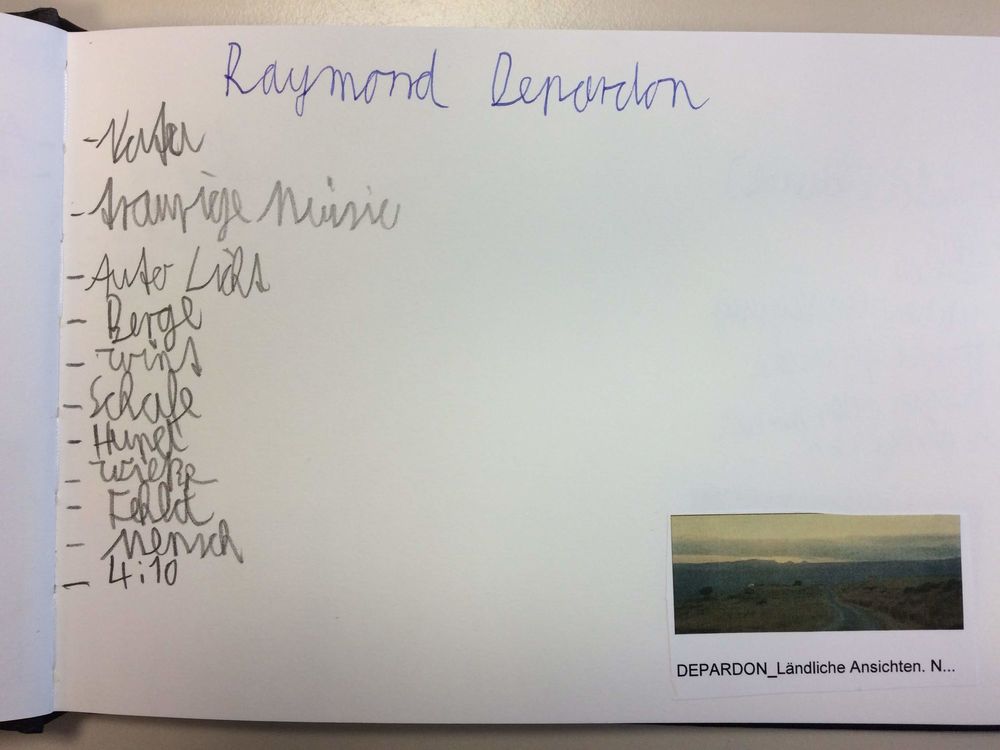 Raymond Depardon
- Natur
- traurige Müsic
- Auto Licht
- Berge
- wint
- Schafe
- Hunet
- wieße
- Fehlet
- Mensch
- 4:10
DEPARDON_Ländliche Ansichten. N...